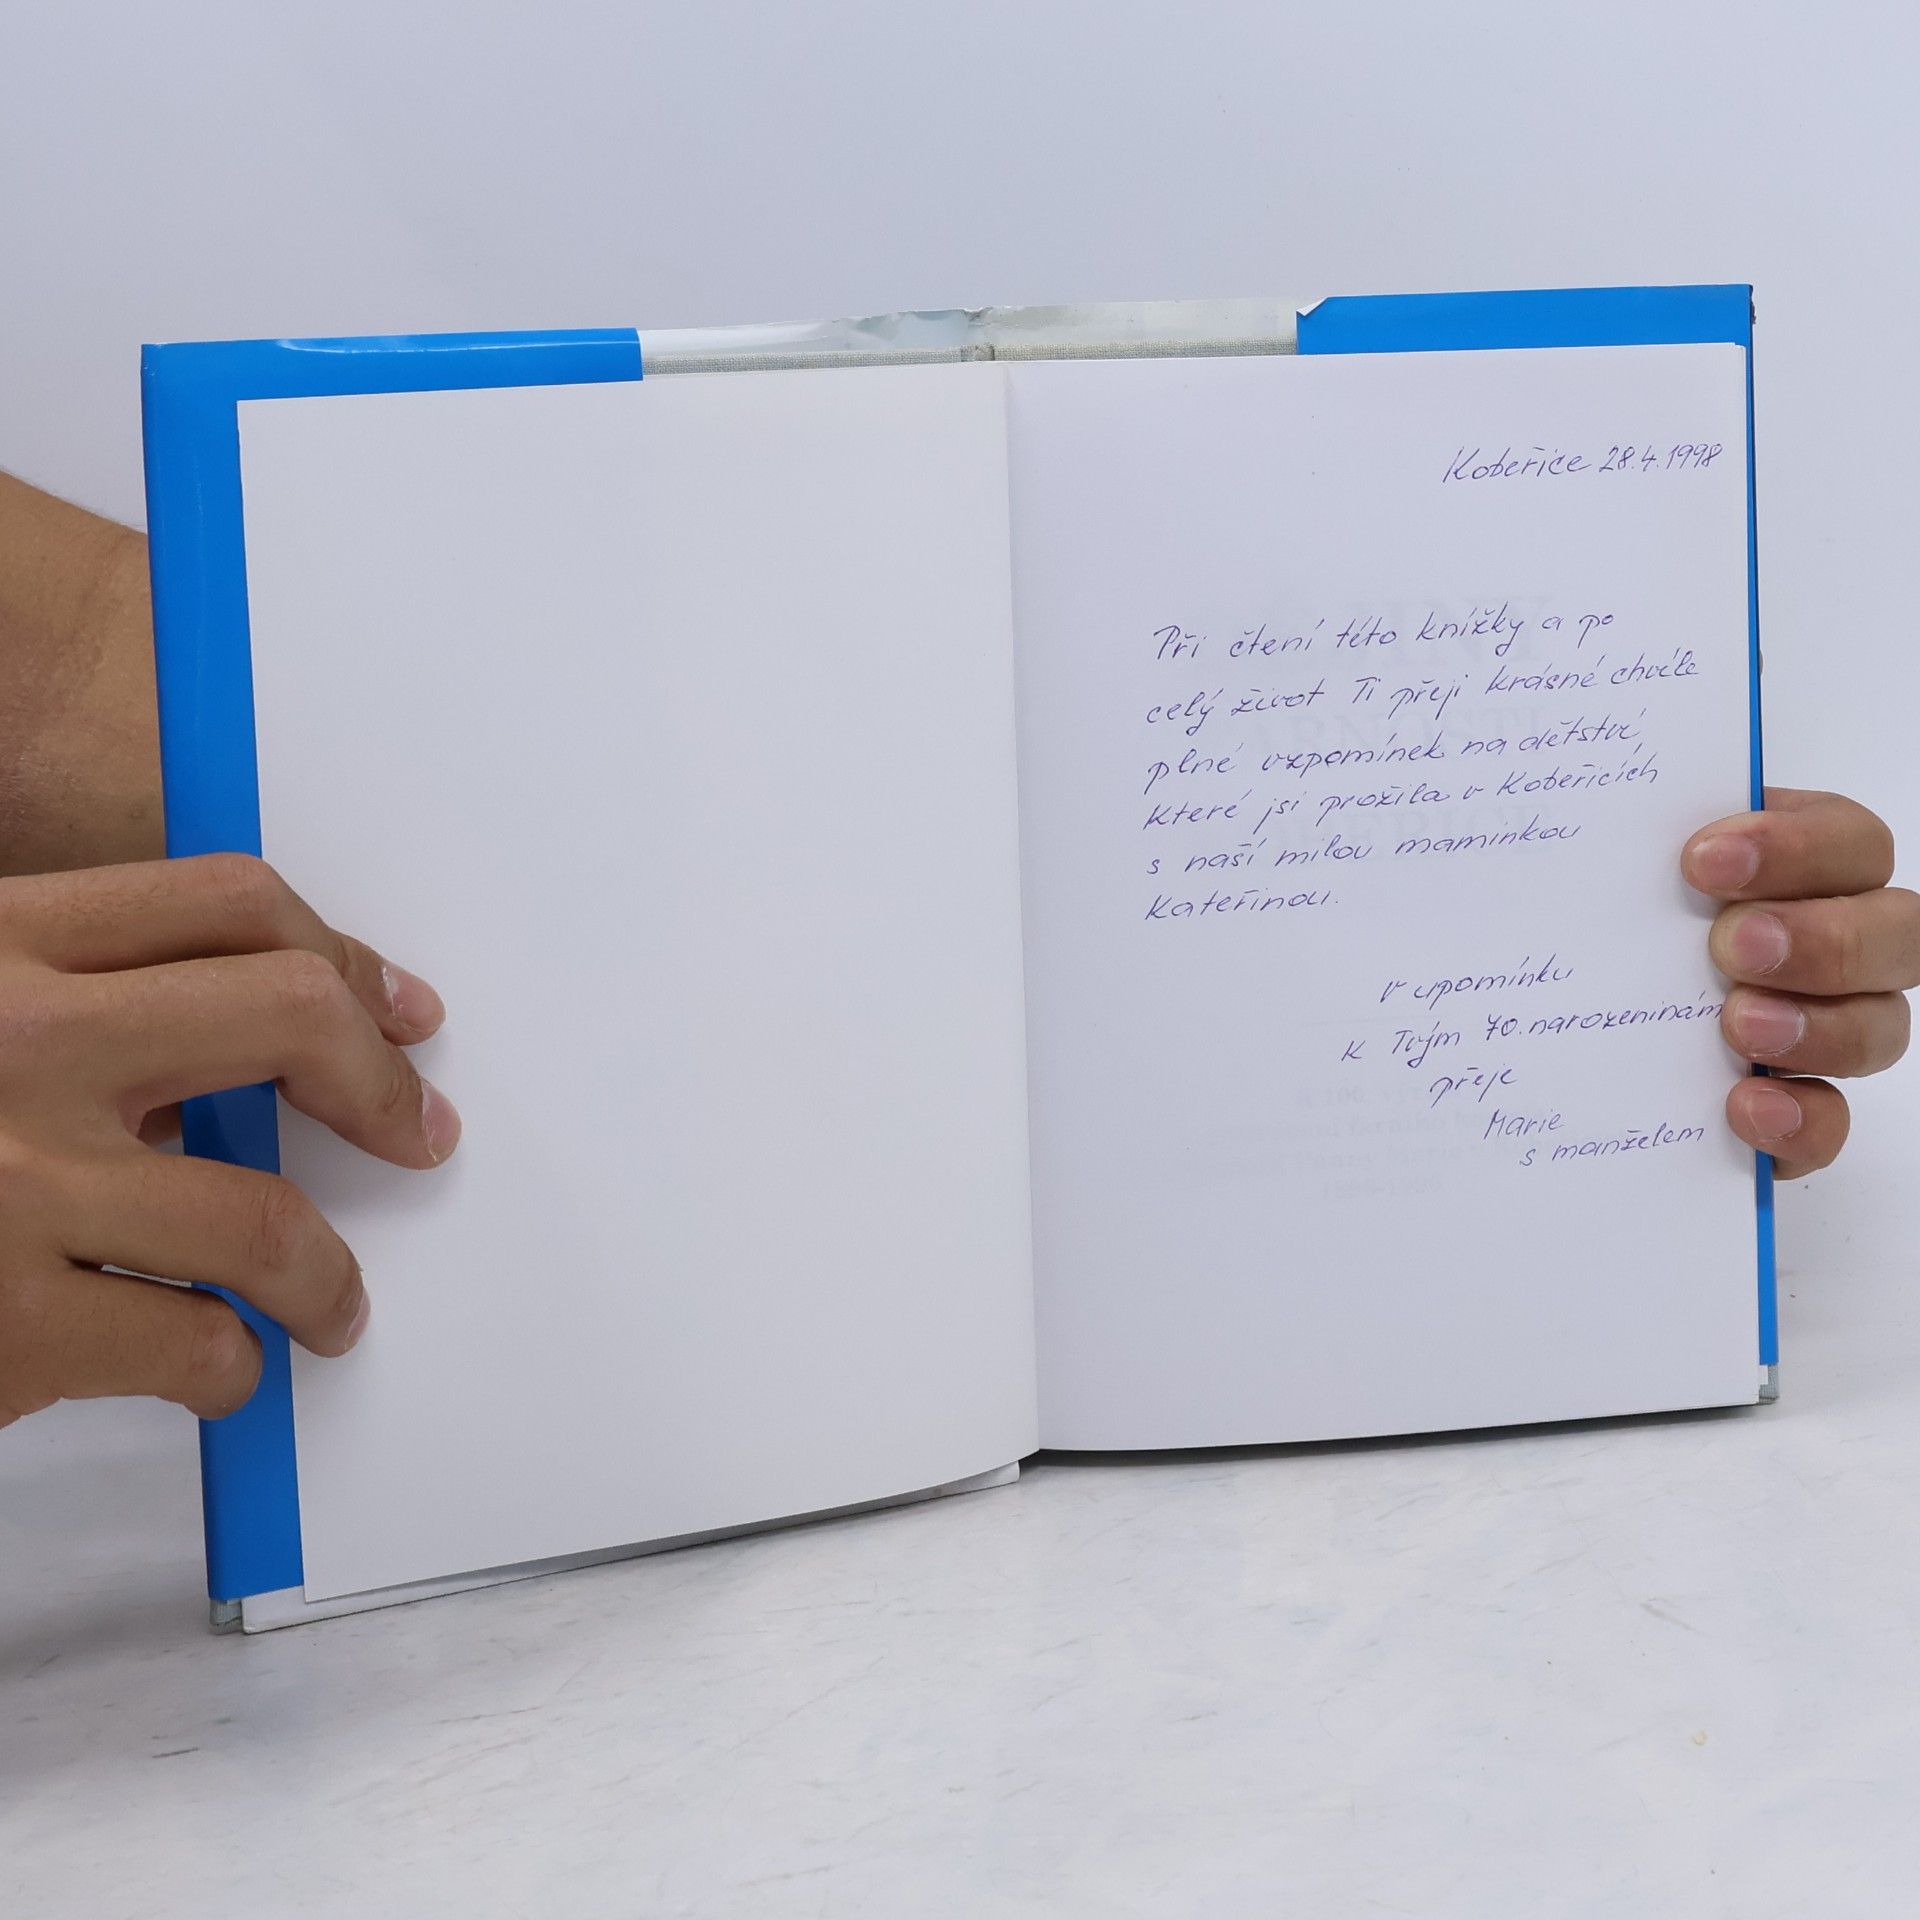 Kobeřice 28.4.1998
Při čtení této knížky a po
celý život Ti přeji krásné chvíle
plné vzpomínek na dětství,
které jsi prožila v Kobeřicích
s naší milou maminkou
Kateřinou.
v upomínku
k Tvým 70. narozeninám
přeje
Marie
s manželem